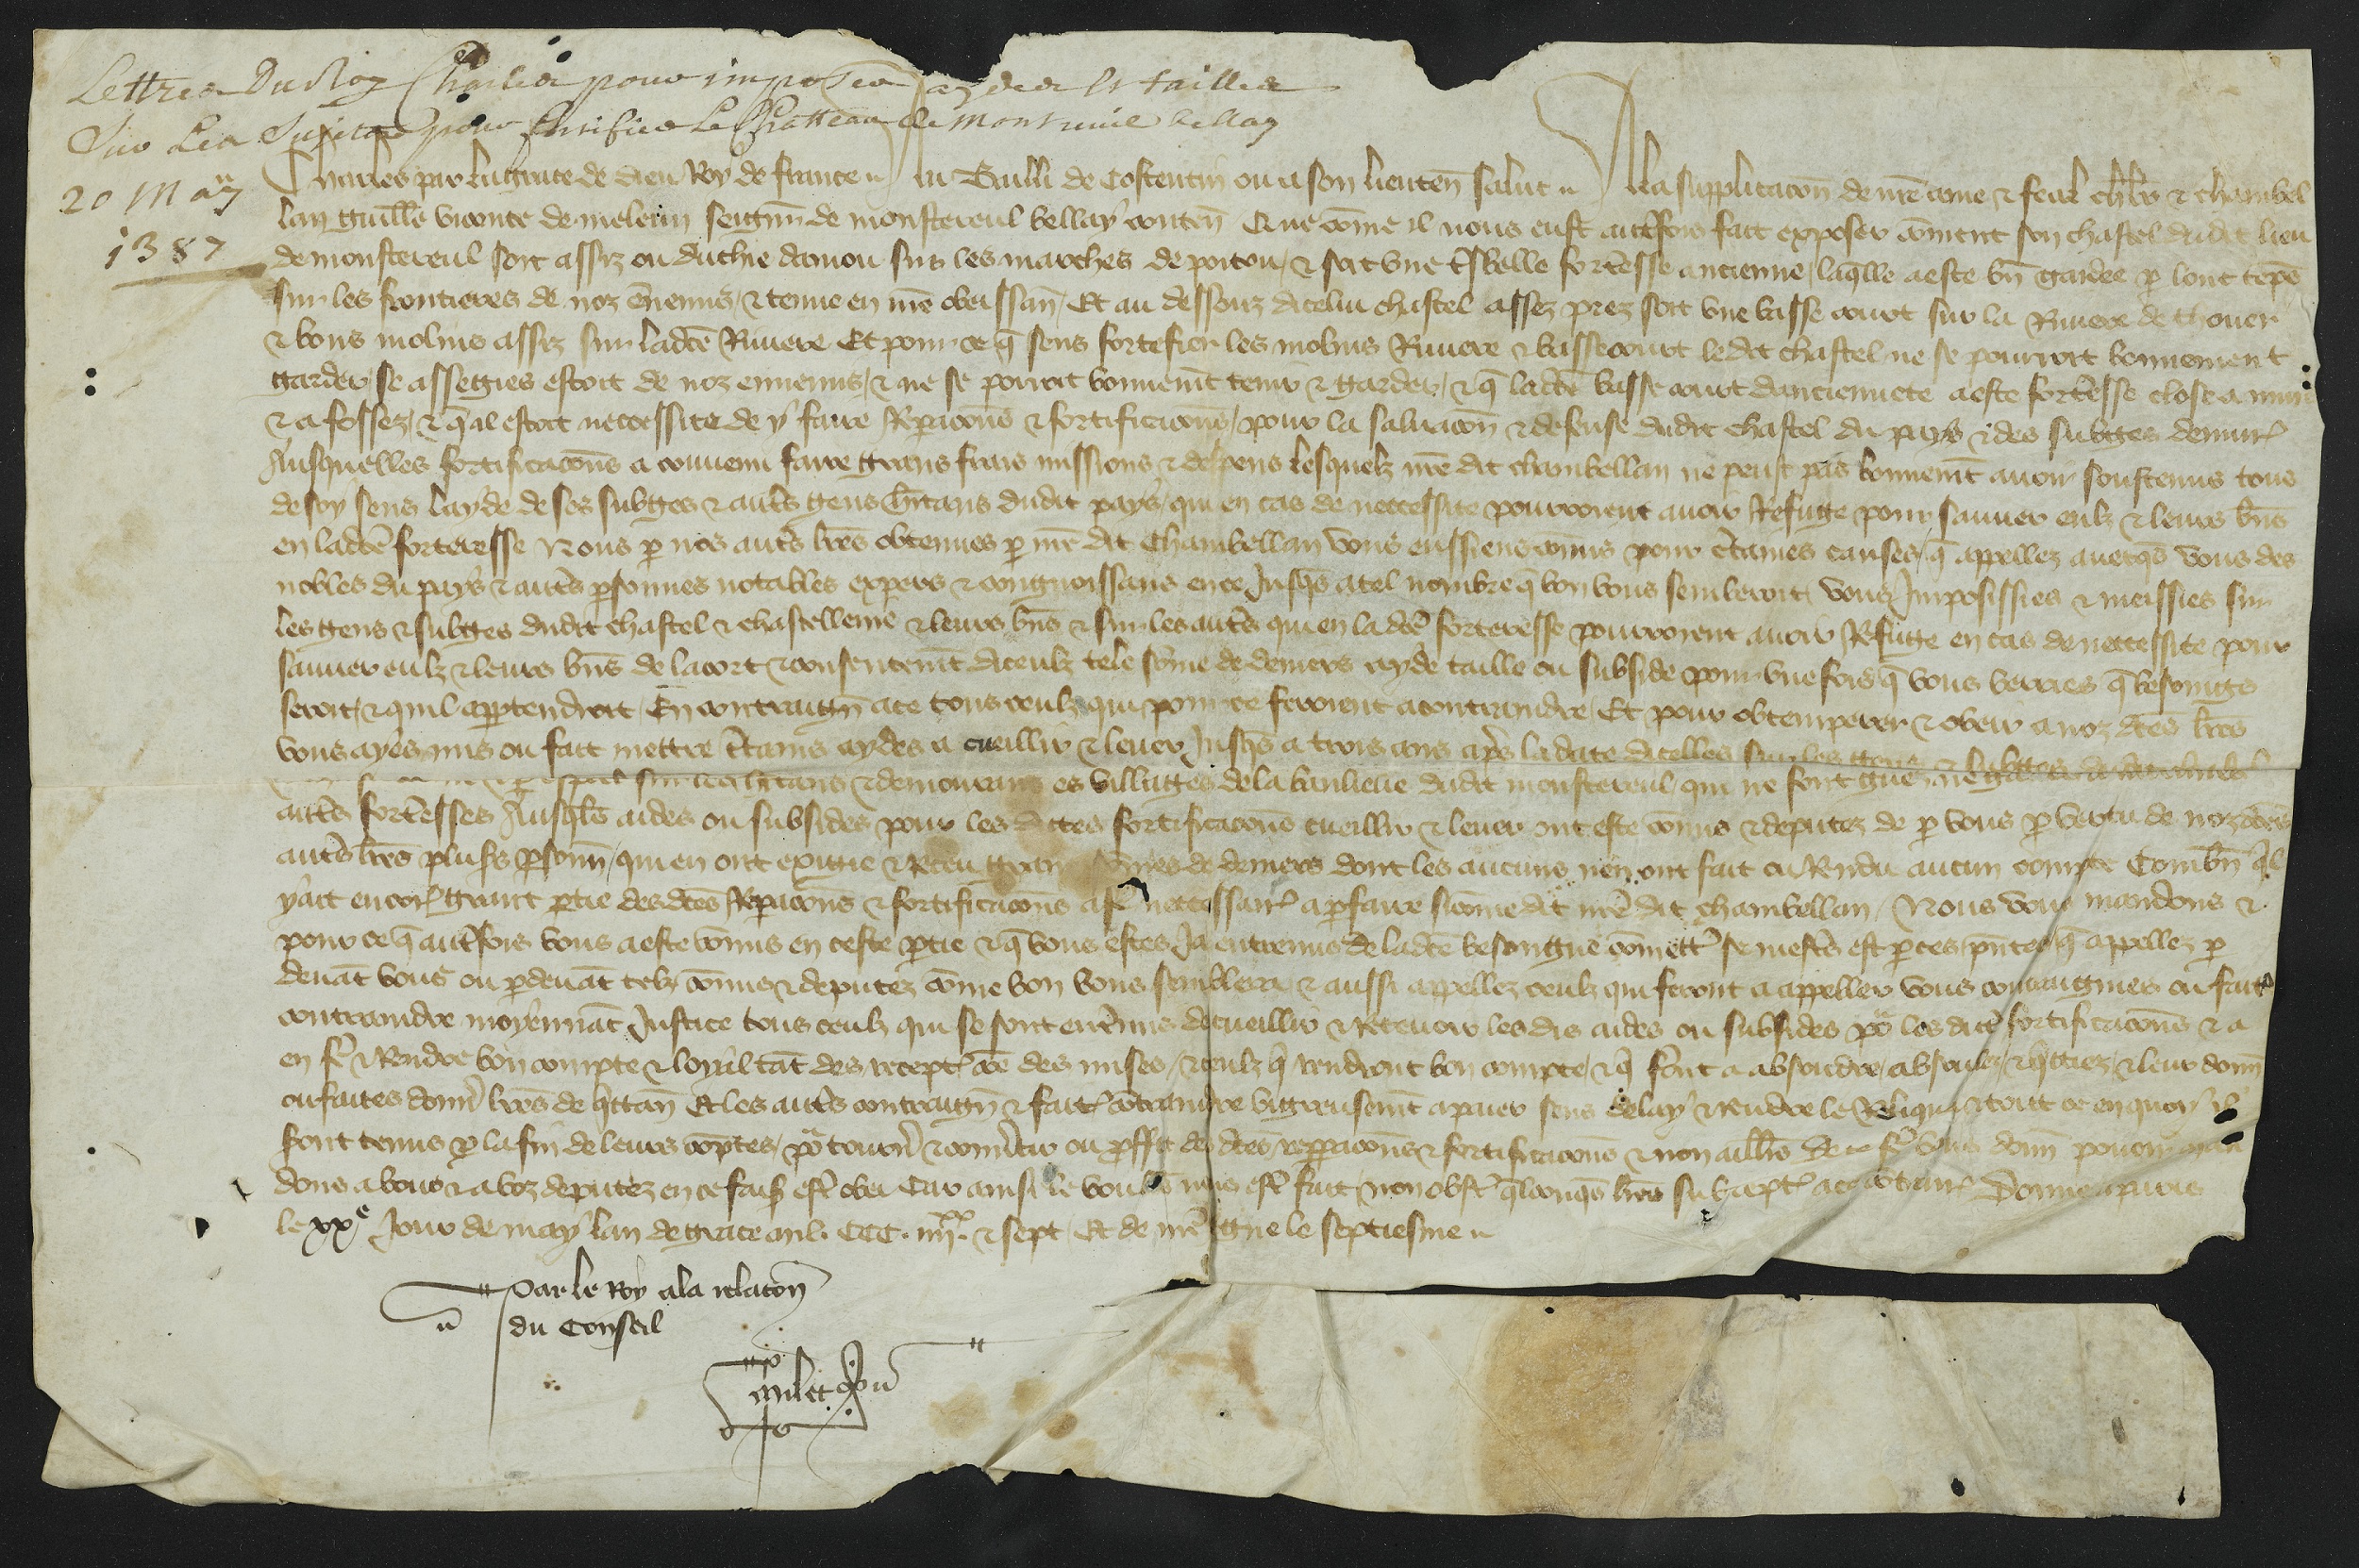 Lettres Du Roy Charles pour imposer aydes et tailles
Sur Les Sujetz pour fortifier Le Chatteau de Montreuil bellay
20 May
1387
Charles par la grace de dieu Roy de france Au Bailli de Costentin ou a son lieuten̄ salut A la supplicacōn de nr̄e ame & feal chl̄r & chambel
lan guill̄e viconte de meleun seign̄r de monstereul bellay conten̄ Que cōme il nous eust autˀfois fait exposer cōment son chastel dudit lieu
de monstereul soit assiz ou duchie danjou sur les marches de poitou & soit une tˀsbelle fortˀesse ancienne laq̄lle a este bn̄ gardee p lonc tēps
sur les frontieres de noz ēnemis & tenue en nr̄e obeissan̄ Et au dessouz dicelui chastel assez prez soit une basse court sur la Riviere de thouer
& bons molins assiz sur ladcē Riviere Et pour ce q̄ sens fortefier les molins Riviere & bassecourt ledit chastel ne se pourroit bonnement
garder se assegies estoit de noz ennemis & ne se porroit bonnemt̄ tenir & garder & q̄ ladcē basse court danciennete a este fortˀesse close a murs
& a fossez & q̄ il estoit neccessite de y faire Repacōns & fortificacōns pour la salvacōn & defense dudit chastel du pays & des subges denvirˀ
Ausquelles fortificacōns a convenu faire grans frais missions & despens lesquelz nr̄e dit chambellan ne peust pas bonnemt̄ avoir soustenus tous
de soy sens layde de ses subges & autˀs gens hītans dudit pays qui en cas de neccessite pourroient avoir Refuge pour sauver eulz & leurs bn̄s
en ladcē forteresse Nous p nos autˀs lr̄es obtenues p nr̄e dit Chambellan vous eussiens cōmis pour cˀtaines causes q̄ appellez avecq̄s vous des
nobles du pays & autˀs psonnes notables expers & congnoissans en ce Jusq̄s a tel nombre q̄ bon vous sembleroit vous Imposissies & meissies sur
les gens & subges dudit chastel & chastellenie & leurs bn̄s & sur les autˀs qui en ladcē forteresse pourroient avoir Refuge en cas de neccessite pour
sauver eulz & leurs bn̄s de lacort & consentemt̄ diceulz tele sōme de deniers ayde taille ou subside pour une fois q̄ vous verries q̄ besoingz
seroit & quil appˀtendroit En contraign̄ a ce tous ceulz qui pour ce feroient a contraindre Et pour obtemperer & obeir a noz dcēs lr̄es
vous ayes mis ou fait mettre cˀtains aydes a cueillir & lever Jusq̄s a trois ans apˀs la date dicelles sur les gens & subgges
hītans & demourans es villages de la banlieue dudit monstereul qui ne font guet ne garde
autˀs fortˀesses Ausq̄lx aides ou subsides pour les dittes fortificacōns cueillir & lever ont este cōmis & deputez de p vous p vertu de noz dcēs
autˀs lr̄es plusˀs psonn̄ qui en ont exigie & Receu gran sōmes de deniers dont les aucuns nen ont fait ou Rendu aucun compte Combn̄ q̄l
y ait encorˀ grant ptie des dcēs Repacōns & fortificacōns a fˀe neccessairˀ a pfaire si cōme dit nr̄e dit chambellan Nous vous mandons &
pour ce q̄ autˀfois vous a este cōmis en ceste ptie & q̄ vous estes Ja entremis de ladcē besongne cōmettˀ se mestˀs est p ces pn̄tes q̄ appellez p
devāt vous ou p devāt telz cōmis & deputez cōme bon vous semblera & aussi appellez ceulz qui feront a appeller vous contraignies ou faitˀ
contraindre moyennāt Justice tous ceulz qui se sont entˀmis de cueillir & Recevoir les dis aides ou subsides po les ditˀ fortificacōns & a
en fˀe & Rendre bon compte & loyal tāt des receptˀ cōe des mises & ceulz q̄ rendront bon compte & q̄ sˀont a absoudre absoulz & q̄ttiez & leur donn̄
ou faites donnˀ lr̄es de q̄ttan̄ Et les autˀs contraign̄ & faitˀ cōtraindre vigreusemt̄ a paier sens delay & Rendre le Reliqua & tout ce en quoy il
sont tenus p la fin de leurs cōptes po tournˀ & convˀtir ou pffit des dcēs reppacōns & fortificacōns & non aillˀs De ce fˀe vous donn̄ povoir man
dons a vous & a voz deputez en ce fais estˀ obei Car ainsi le voulōs nous estˀ fait non obstˀ q̄lconq̄s lr̄es subreptˀ a ce cōtrairˀ Donne a paris
le xxe Jour de may lan de grace mil. CCC. iiiixx. & sept Et de nr̄e Regne le septiesme
Par le Roy a la relacōn
du Conseil